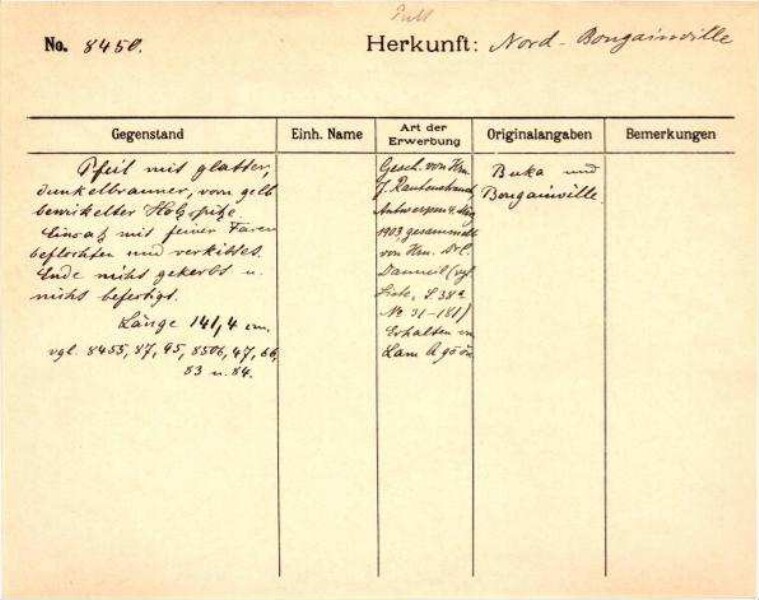 No. 8450.
Herkunft: Nord-Bougainville
Gegenstand
Einh. Name
Art der Erwerbung
Originalangaben
Bemerkungen
Pfeil mit glatter,
dunkelbrauner, vorn gelb
bewickelter Holzspitze.
Einsatz mit feiner Faser
beflochten und verkittet.
Ende nicht gekerbt u.
nicht befestigt.
Länge 141,4 cm.
vgl. 8455, 87, 95, 8506, 47, 66,
83 u. 84.
Gesch. von Hrn.
J. Rautenstrauch,
Antwerpen 4. Mrz
1903 gesammelt
von Hrn. Dr C.
Danneil (vgl.
Liste, S. 38a
No 31-181)
Erhalten
Buka und
Bougainville.